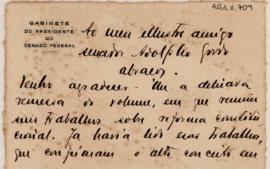 AGA.8.709
GABINETE
DO PRESIDENTE
DO
SENADO FEDERAL
Ao meu illustre amigo
senador Adolpho Gordo
abraços.
Venho agradecer-lhe a delicada
remessa do volume, em que reuniu
seus trabalhos sobre reforma constitu
cional. Já havia lido esses trabalhos,
que confirmam o alto conceito em